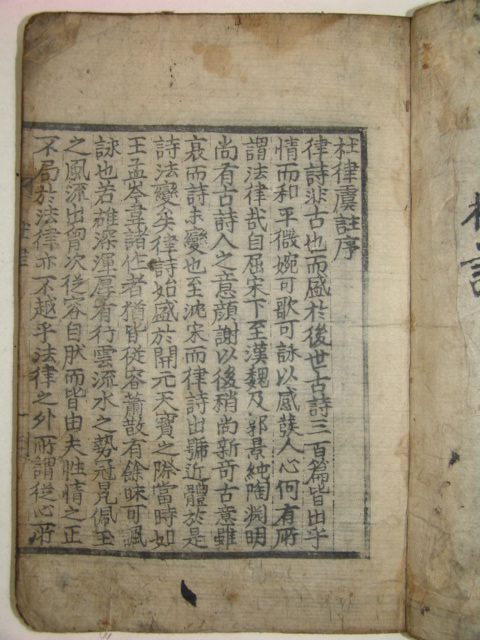 杜律虞註序
律詩非古也而盛於後世古詩三百篇皆出乎
情而和平微婉可歌可詠以感發人心何有所
謂法律哉自屈宋下至漢魏及郭景純陶淵明
尚有古詩人之意顔謝以後稍尚新奇古意雖
衰而詩未變也至沈宋而律詩出號近體於是
詩法變矣律詩始盛於開元天寶之際當時如
王孟岑韋諸作者猶皆從容蕭散有餘味可諷
詠也若雄深渾厚有行雲流水之勢冠冕佩玉
之風流出胷次從容自然而皆由夫性情之正
不局於法律亦不越乎法律之外所謂從心所